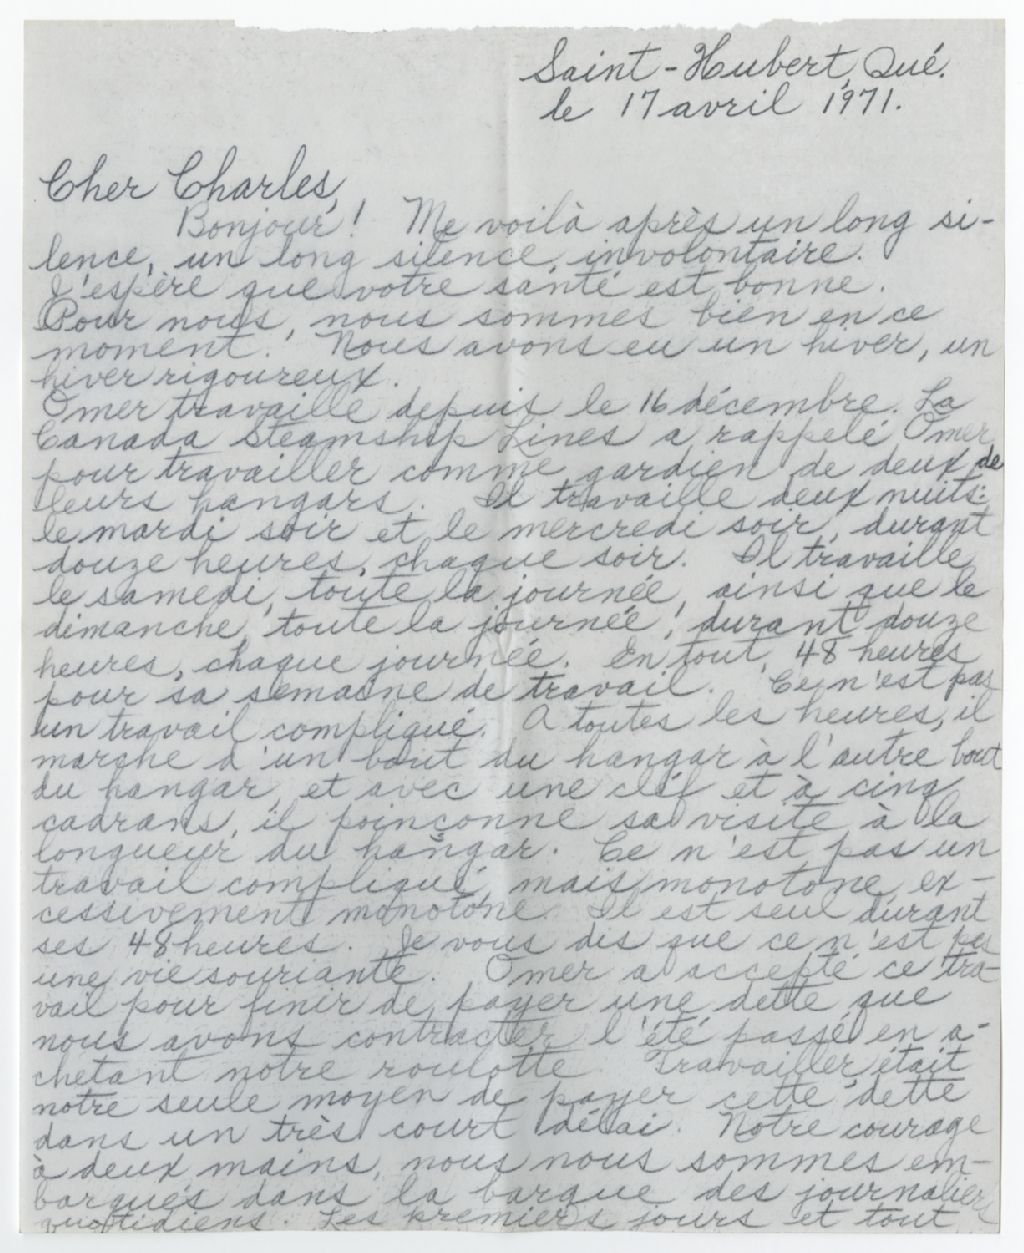 Saint-Hubert, Qué.
le 17 avril 1971.
Cher Charles,
Bonjour! Me voilà après un long si-
lence, un long silence, involontaire.
J'espère que votre santé est bonne.
Pour nous, nous sommes bien en ce
moment. Nous avons eu un hiver, un
hiver rigoureux.
Omer travaille depuis le 16 décembre. La
Canada Steamship Lines a rappelé Omer
pour travailler comme gardien de deux de
leurs hangars. Il travaille deux nuits:
le mardi soir et le mercredi soir, durant
douze heures, chaque soir. Il travaille
le samedi, toute la journée, ainsi que le
dimanche, toute la journée, durant douze
heures, chaque journée. En tout, 48 heures
pour sa semaine de travail. Ce n'est pas
un travail compliqué. A toutes les heures, il
marche d'un bout du hangar à l'autre bout
du hangar, et avec une clef et à cinq
cadrans, il poinçonne sa visite à la
longueur du hangar. Ce n'est pas un
travail compliqué, mais monotone, ex-
cessivement monotone. Il est seul durant
ses 48 heures. Je vous dis que ce n'est pas
une vie souriante. Omer a accepté ce tra-
vail pour finir de payer une dette que
nous avons contracter l'été passé en a-
chetant notre roulotte. Travailler était
notre seule moyen de payer cette dette
dans un très court délai. Notre courage
à deux mains, nous nous sommes em-
barqués dans la barque des journaliers
quotidiens. Les premiers jours et tout